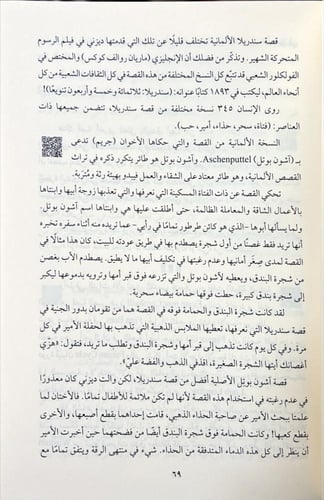 قصة سندريلا الألمانية تختلف قليلًا عن تلك التي قدمتها ديزني في فيلم الرسوم
المتحركة الشهير. وتذكّر من فضلك أن الإنجليزي (ماريان رولف كوكس) والمختص في
الفولكلور الشعبي قد تتبّع كل النسخ المختلفة من هذه القصة في كل الثقافات الشعبية من كل
أنحاء العالم، ليكتب في ١٨٩٣ كتابًا عنوانه: (سندريلا: ثلاثمائة وخمسة وأربعون تنويعًا)!
روى الإنسان ٣٤٥ نسخة مختلفة من قصة سندريلا، تتضمن جميعها ذات
العناصر: (فتاة، سحر، حذاء، أمير، حب).
النسخة الألمانية من القصة والتي حكاها الأخوان (جريم) تدعى
بـ (آشون بوتل) Aschenputtel. وآشون بوتل هو طائر يتكرر ذكره في تراث
القصص الألمانية، وهو طائر معتاد على الشقاء والعمل فيبدو بهيئة رثة ومُتربة.
تحكي القصة عن ذات الفتاة المسكينة التي نعرفها والتي تعذبها زوجة أبيها وابنتاها
بالأعمال الشاقة والمعاملة الظالمة، حتى أطلقت عليها هي وابنتاها اسم آشون بوتل.
ولما يسألها أبوها –الذي هو كائن طرطور تمامًا في رأيي– عما تريده منه أثناء سفره تخبره
أنها تريد فقط غصنًا من أول شجرة يصطدم بها في طريق عودته للبيت، كان هذا مثالًا في
القصة لمدى صِغر أمانيها وعدم رغبتها في تكليف أبيها ما لا يطيق. يصطدم الأب بغصن
من شجرة البندق، ويعطيه لآشون بوتل والتي تزرعه فوق قبر أمها وترويه بدموعها ليكبر
إلى شجرة بندق كبيرة، حطت فوقها حمامة بيضاء سحرية.
لقد كانت شجرة البندق والحمامة فوقه في القصة هما من تقومان بدور الجنية في
قصة سندريلا التي نعرفها، تعطيها الملابس الذهبية التي تذهب بها لحفلة الأمير في كل
مرة. وفي كل يوم كانت تذهب إلى قبر أمها وشجرة البندق وتطلب ما تريد، فتقول: «هزّي
أغصانك أيتها الشجرة الصغيرة، اقذفي الذهب والفضة عليّ».
قصة آشون بوتل الأصلية أفضل من قصة سندريلا، لكن والت ديزني كان معذورًا
في عدم رغبته في استخدام هذه القصة لأنها لم تكن ملائمة للأطفال تمامًا. فالأختان لما
علمتا ببحث الأمير عن صاحبة الحذاء الذهبي، قامت إحداهما بقطع أصبعها، والأخرى
بقطع كعبها! وكانت الحمامة فوق شجرة البندق أيضًا من فضحتهما حين أخبرت الأمير
أن ينظر إلى كل هذه الدماء المتدفقة من الحذاء. شيء في منتهى الرقة ويتفق تمامًا مع
٦٩